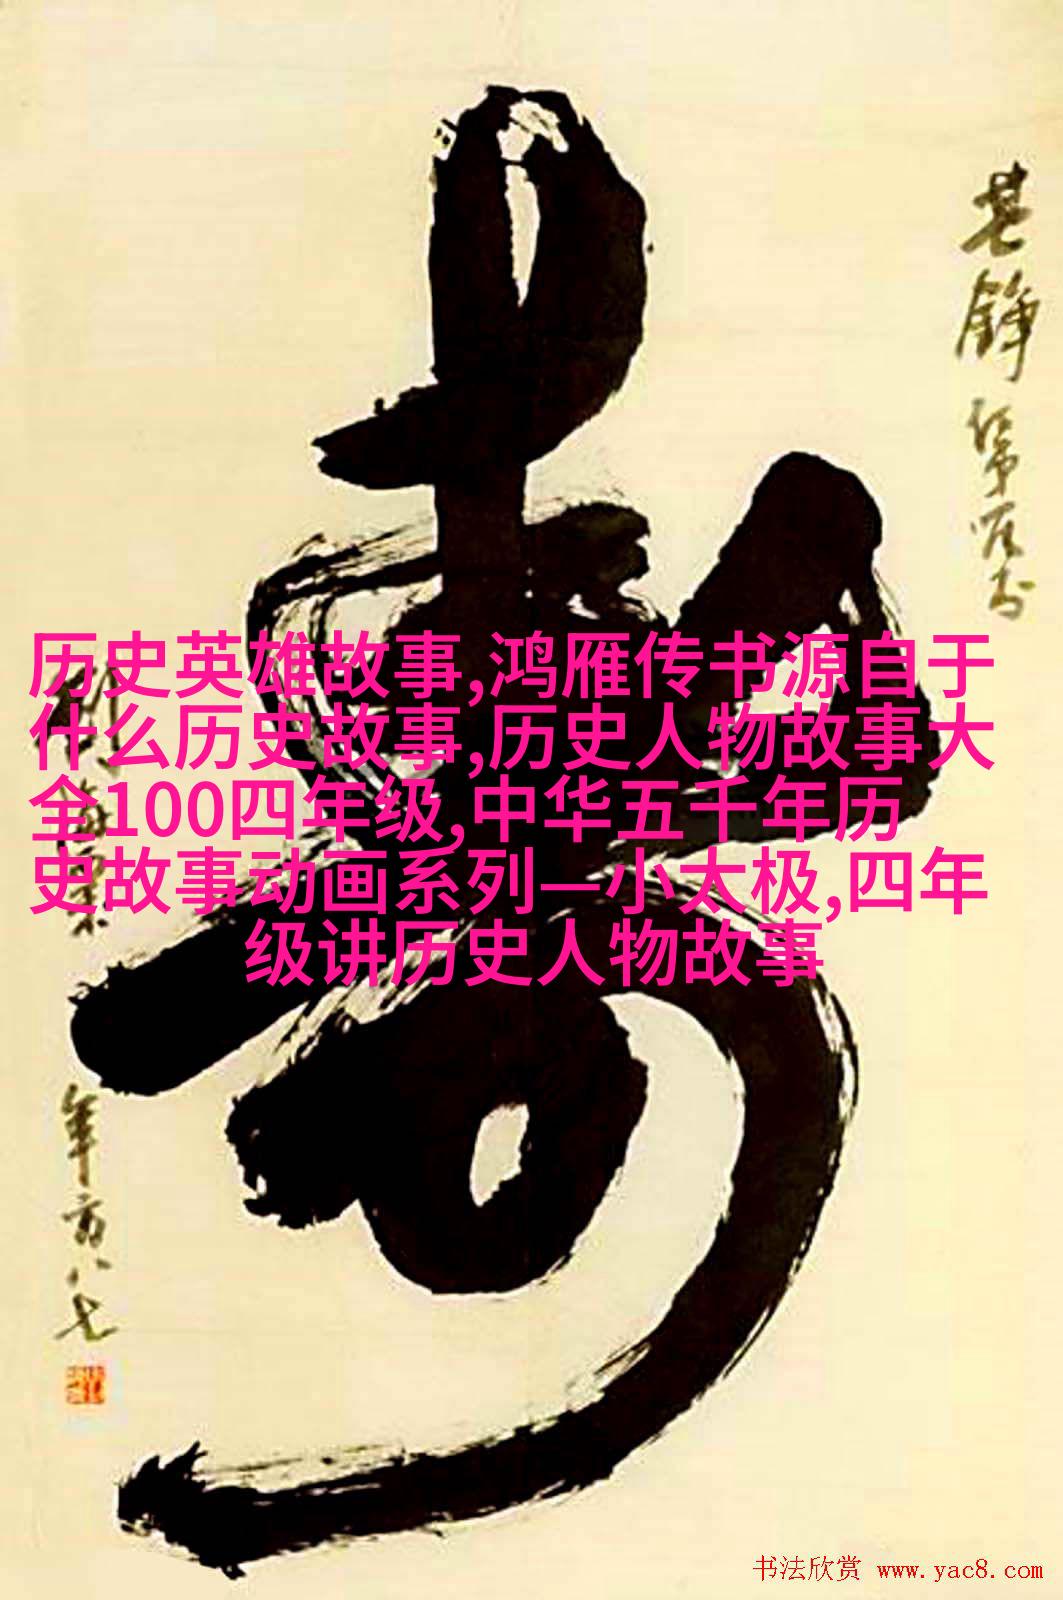 寿
其铮
历史英雄故事,鸿雁传书源自于
什么历史故事,历史人物故事大
全100四年级,中华五千年历
史故事动画系列—小太极,四年
级讲历史人物故事
年方八七
书法欣赏 www.yac8.com